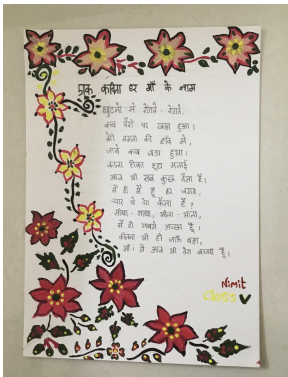 एक कविता हर माँ के नाम
घुटनो से रेंगते - रेंगते,
कब पैरो पर खड़ा हुआ।
तेरी ममता की छाँव में,
जाने कब बड़ा हुआ।
काला टीका दूध मलाई
आज भी सब कुछ वैसा है।
मैं ही मैं हूँ हर जगह,
प्यार ये तेरा कैसा है?
सीधा-साधा, भोला-भाला,
मैं ही सबसे अच्छा हूँ।
कितना भी हो जाऊँ बड़ा,
माँ। मैं आज भी तेरा बच्चा हूँ।
Nimit
Class V